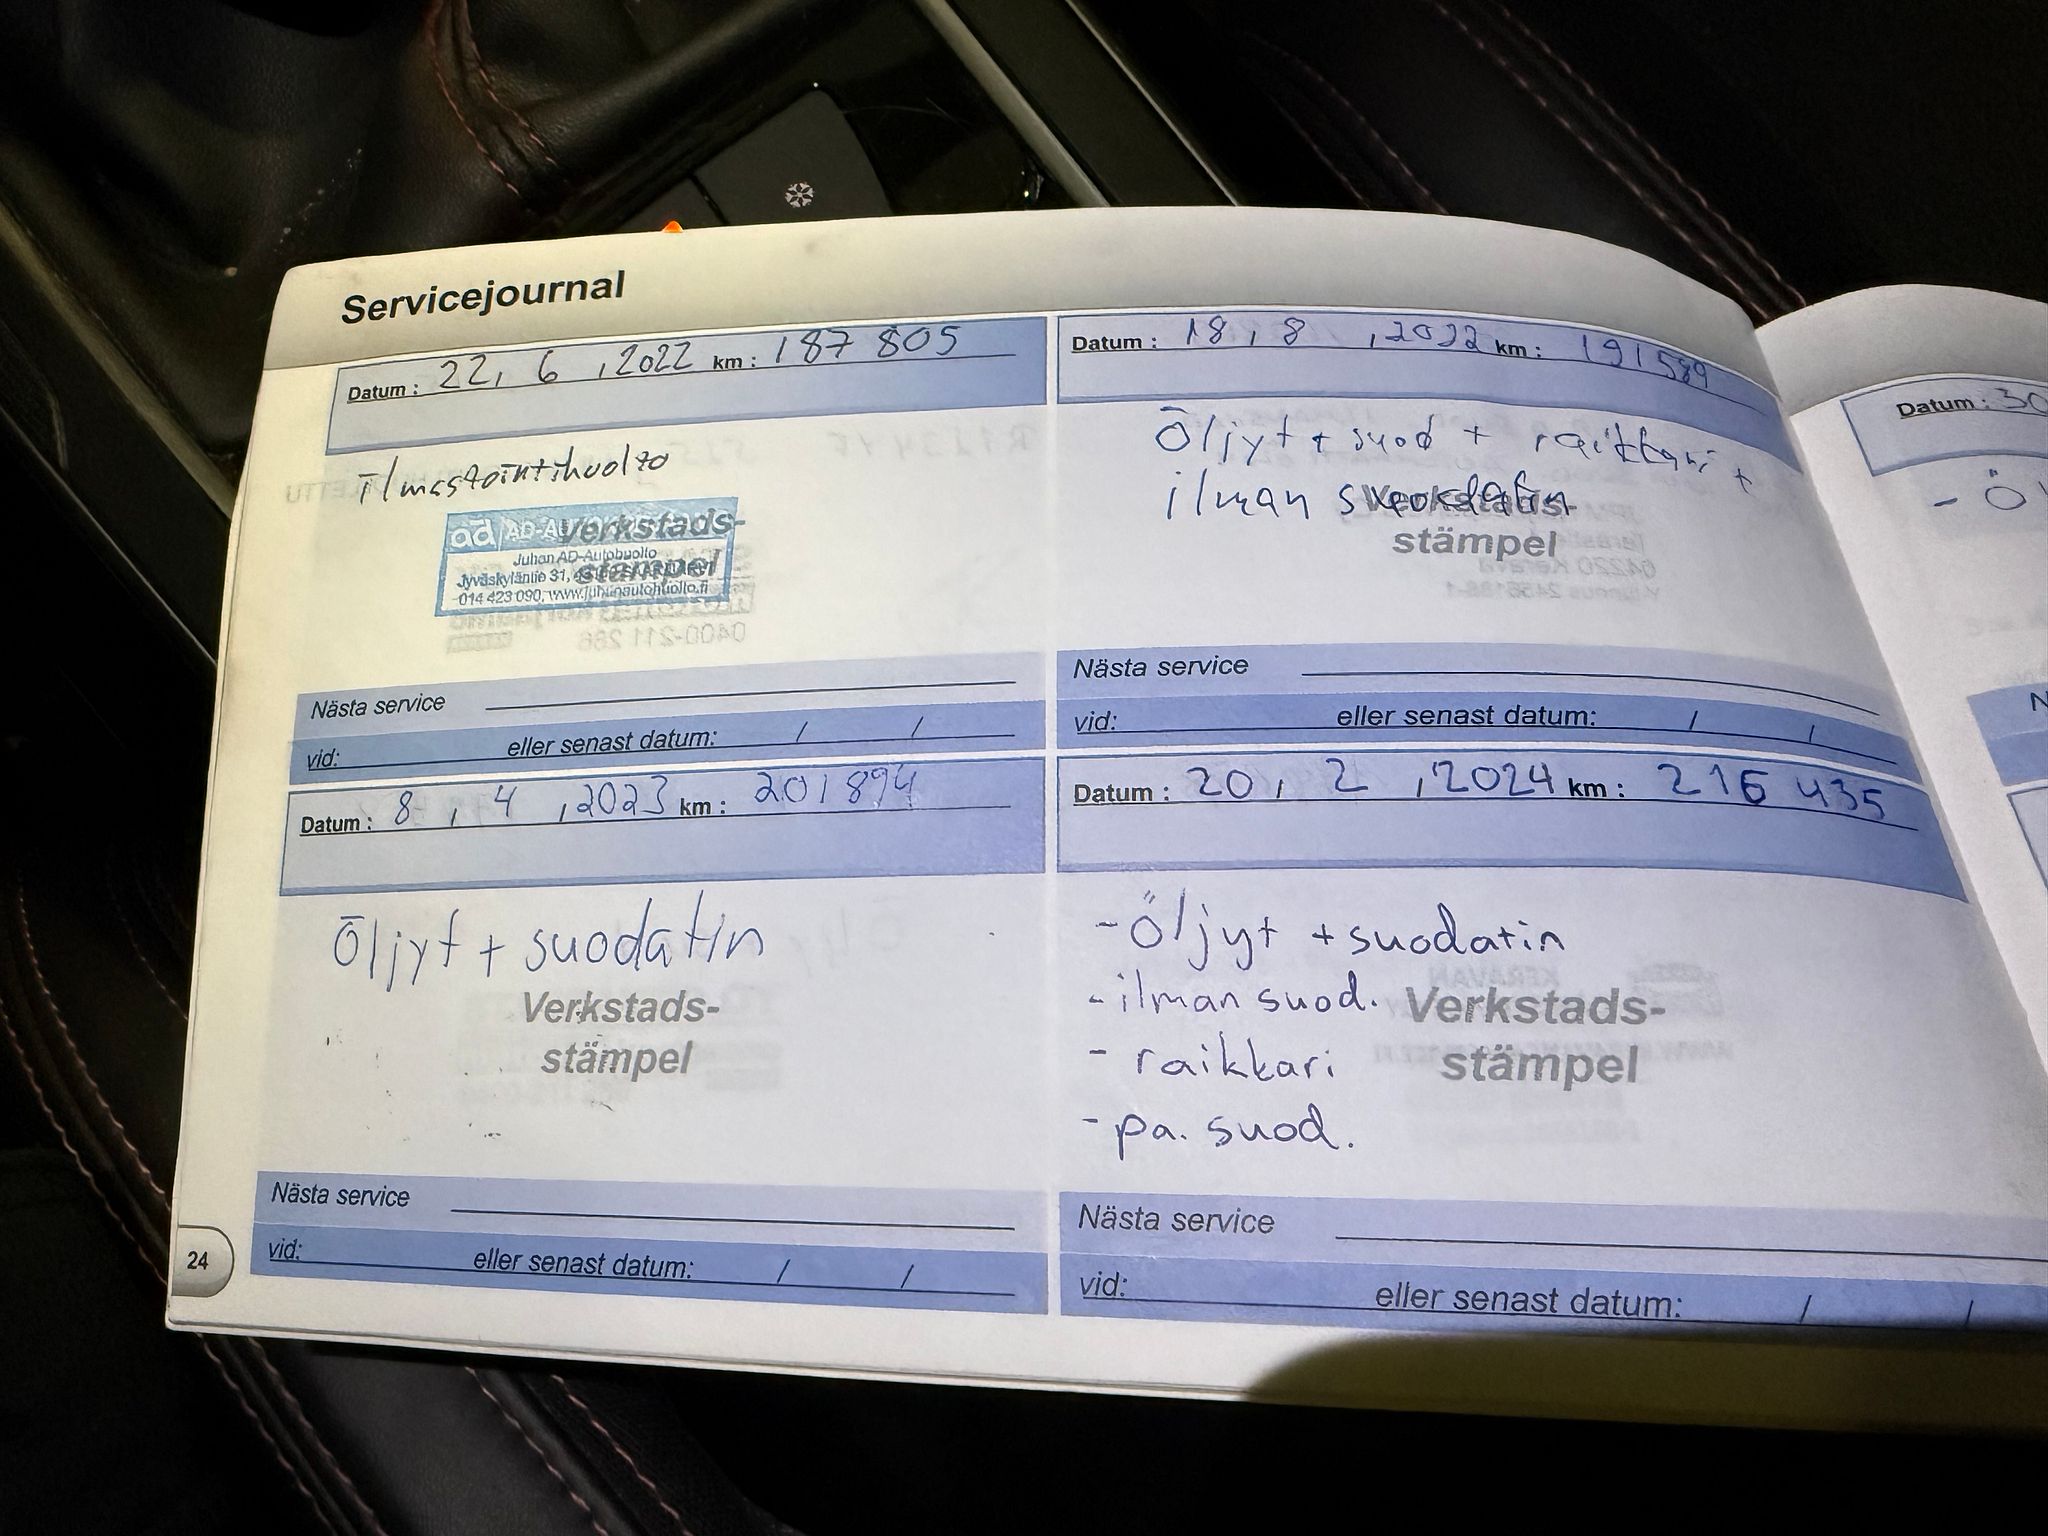 Servicejournal
Datum : 22, 6 , 2022 km : 187 805
Ilmastointihuolto
ad AD-
Verkstads-
Juhan AD-Autohuolto
stämpel
Jyväskyläntie 31,
014 423 090, www.juhanautohuolto.fi
0400-211 266
Nästa service
vid: eller senast datum: / /
Datum : 18, 8 , 2022 km : 191589
Öljyt + suod + raikkari +
ilman suodatin
Verkstads-
stämpel
04220 Kerava
Nästa service
vid: eller senast datum: / /
Datum : 8 , 4 , 2023 km : 201894
Öljyt + suodatin
Verkstads-
stämpel
Nästa service
vid: eller senast datum: / /
Datum : 20, 2 , 2024 km : 216 435
- Öljyt + suodatin
- ilman suod.
- raikkari
- pa. suod.
Verkstads-
stämpel
Nästa service
vid: eller senast datum: / /
24
Datum : 30